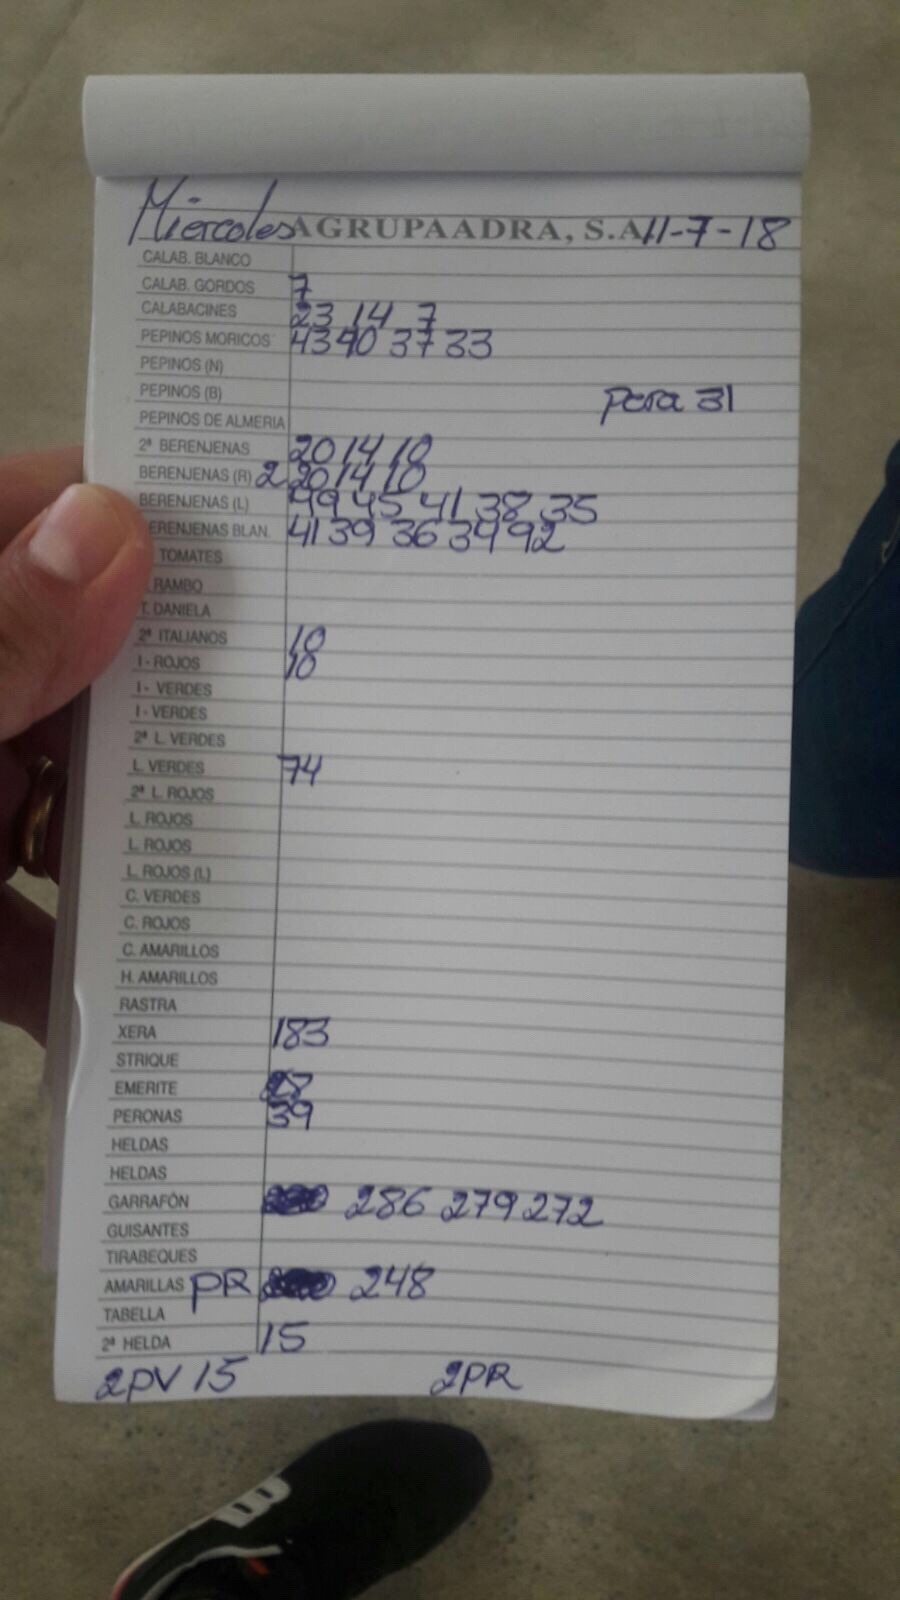 Miercoles AGRUPAADRA, S.A. 11-7-18
CALAB. BLANCO
CALAB. GORDOS 7
CALABACINES 23 14 7
PEPINOS MORICOS 43 40 37 33
PEPINOS (N)
PEPINOS (B) para 31
PEPINOS DE ALMERIA
2ª BERENJENAS 20 14 10
BERENJENAS (R) 2 20 14 10
BERENJENAS (L) 49 45 41 38 35
BERENJENAS BLAN. 41 39 36 34 92
TOMATES
RAMBO
T. DANIELA
2ª ITALIANOS 10
I - ROJOS 10
I - VERDES
I - VERDES
2ª L. VERDES
L. VERDES 74
2ª L. ROJOS
L. ROJOS
L. ROJOS
L. ROJOS (L)
C. VERDES
C. ROJOS
C. AMARILLOS
H. AMARILLOS
RASTRA
XERA 183
STRIQUE
EMERITE
PERONAS 39
HELDAS
HELDAS
GARRAFÓN 286 279 272
GUISANTES
TIRABEQUES
AMARILLAS PR 248
TABELLA
2ª HELDA 15
2PV 15 2PR